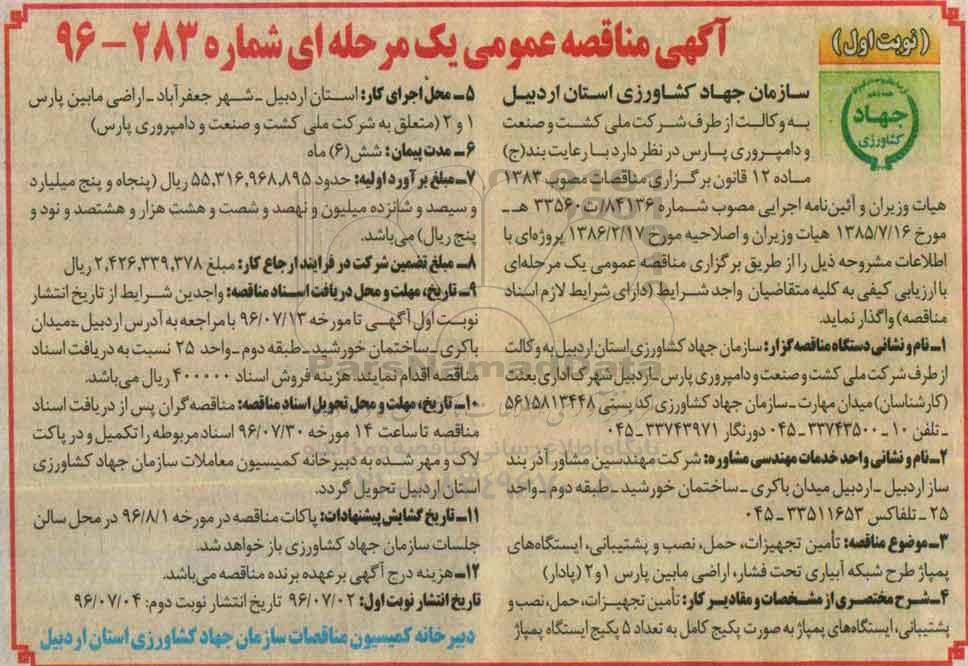 آگهی مناقصه عمومی یک مرحله ای شماره ۲۸۳ – ۹۶
(نوبت اول)
جهاد
کشاورزی
سازمان جهاد کشاورزی استان اردبیل
به وکالت از طرف شرکت ملی کشت و صنعت
و دامپروری پارس در نظر دارد با رعایت بند(ج)
ماده ۱۲ قانون برگزاری مناقصات مصوب ۱۳۸۳
هیات وزیران و آئین‌نامه اجرایی مصوب شماره ۸۴۱۳۶/ت۳۳۵۶۰ هـ ـ
مورخ ۱۳۸۵/۷/۱۶ هیات وزیران و اصلاحیه مورخ ۱۳۸۶/۲/۱۷ پروژه‌ای با
اطلاعات مشروحه ذیل را از طریق برگزاری مناقصه عمومی یک مرحله‌ای
با ارزیابی کیفی به کلیه متقاضیان واجد شرایط (دارای شرایط لازم اسناد
مناقصه) واگذار نماید.
۱ـ نام و نشانی دستگاه مناقصه گزار: سازمان جهاد کشاورزی استان اردبیل به وکالت
از طرف شرکت ملی کشت و صنعت و دامپروری پارس ـ اردبیل شهرک اداری بعثت
(کارشناسان) میدان مهارت ـ سازمان جهاد کشاورزی کد پستی ۵۶۱۵۸۱۳۴۴۸
ـ تلفن ۱۰ ـ ۳۳۷۴۳۵۰۰ ـ ۰۴۵ دورنگار ۳۳۷۴۳۹۷۱ ـ ۰۴۵
۲ـ نام و نشانی واحد خدمات مهندسی مشاوره: شرکت مهندسین مشاور آذر بند
ساز اردبیل ـ اردبیل میدان باکری ـ ساختمان خورشید ـ طبقه دوم ـ واحد
۲۵ ـ تلفاکس ۳۳۵۱۱۶۵۳ ـ ۰۴۵
۳ـ موضوع مناقصه: تأمین تجهیزات، حمل، نصب و پشتیبانی، ایستگاه‌های
پمپاژ طرح شبکه آبیاری تحت فشار، اراضی مابین پارس ۱ و ۲ (پادار)
۴ـ شرح مختصری از مشخصات و مقادیر کار: تأمین تجهیزات، حمل، نصب و
پشتیبانی، ایستگاه‌های پمپاژ به صورت پکیج کامل به تعداد ۵ پکیج ایستگاه پمپاژ
۵ـ محل اجرای کار: استان اردبیل ـ شهر جعفرآباد ـ اراضی مابین پارس
۱ و ۲ (متعلق به شرکت ملی کشت و صنعت و دامپروری پارس)
۶ـ مدت پیمان: شش(۶) ماه
۷ـ مبلغ برآورد اولیه: حدود ۵۵,۳۱۶,۹۶۸,۸۹۵ ریال (پنجاه و پنج میلیارد
و سیصد و شانزده میلیون و نهصد و شصت و هشت هزار و هشتصد و نود و
پنج ریال) می‌باشد.
۸ـ مبلغ تضمین شرکت در فرایند ارجاع کار: مبلغ ۲,۴۲۶,۳۳۹,۳۷۸ ریال
۹ـ تاریخ، مهلت و محل دریافت اسناد مناقصه: واجدین شرایط از تاریخ انتشار
نوبت اول آگهی تا مورخه ۹۶/۰۷/۱۳ با مراجعه به آدرس اردبیل ـ میدان
باکری ـ ساختمان خورشید ـ طبقه دوم ـ واحد ۲۵ نسبت به دریافت اسناد
مناقصه اقدام نمایند. هزینه فروش اسناد ۴۰۰۰۰۰ ریال می‌باشد.
۱۰ـ تاریخ، مهلت و محل تحویل اسناد مناقصه: مناقصه‌گران پس از دریافت اسناد
مناقصه تا ساعت ۱۴ مورخه ۹۶/۰۷/۳۰ اسناد مربوطه را تکمیل و در پاکت
لاک و مهر شده به دبیرخانه کمیسیون معاملات سازمان جهاد کشاورزی
استان اردبیل تحویل گردد.
۱۱ـ تاریخ گشایش پیشنهادات: پاکات مناقصه در مورخه ۹۶/۸/۱ در محل سالن
جلسات سازمان جهاد کشاورزی باز خواهد شد.
۱۲ـ هزینه درج آگهی بر عهده برنده مناقصه می‌باشد.
تاریخ انتشار نوبت اول: ۹۶/۰۷/۰۲ تاریخ انتشار نوبت دوم: ۹۶/۰۷/۰۴
دبیرخانه کمیسیون مناقصات سازمان جهاد کشاورزی استان اردبیل
ParsNamadData